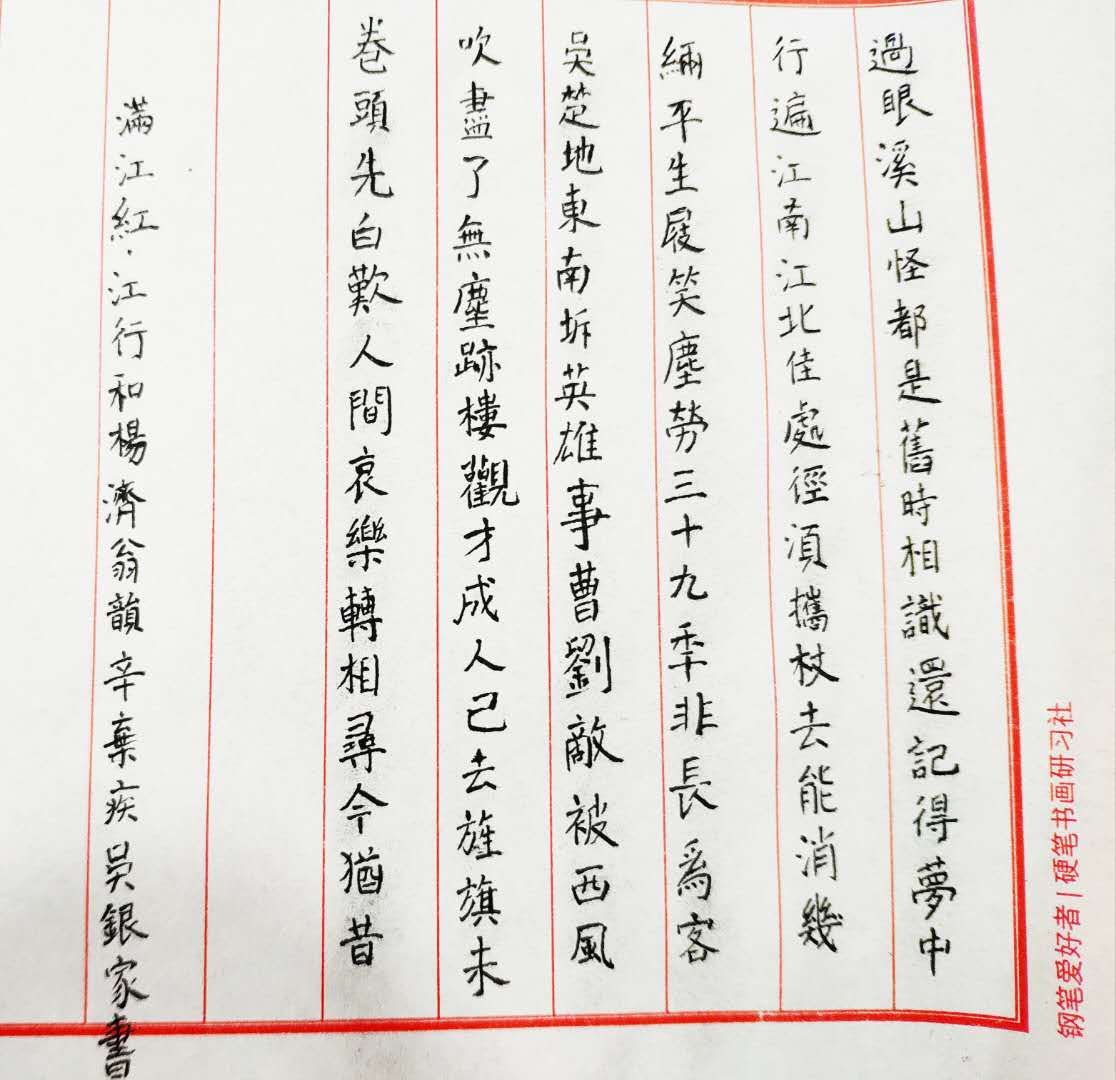 過眼溪山怪都是舊時相識還記得夢中
行遍江南江北佳處徑須攜杖去能消幾
緉平生屐笑塵勞三十九年非長爲客
吳楚地東南坼英雄事曹劉敵被西風
吹盡了無塵跡樓觀才成人已去旌旗未
卷頭先白歎人間哀樂轉相尋今猶昔
滿江紅·江行和楊濟翁韻辛棄疾吳銀家書
钢笔爱好者|硬笔书画研习社